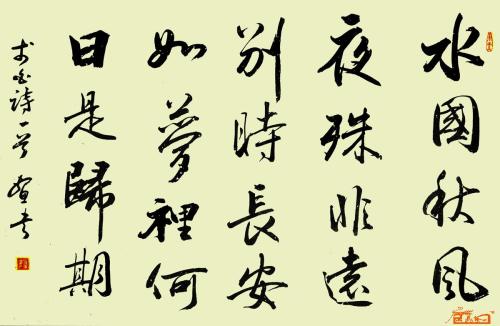 水國秋風
夜殊非遠
別時長安
如夢裡何
日是歸期
李白詩一首